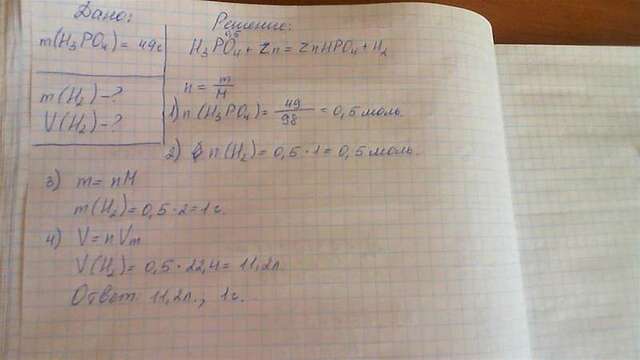 Дано:
m(H₃PO₄) = 49г
m(H₂) -?
V(H₂) -?
Решение:
0,5
H₃PO₄ + Zn = ZnHPO₄ + H₂
n = m/M
1) n(H₃PO₄) = 49/98 = 0,5 моль.
2) n(H₂) = 0,5 · 1 = 0,5 моль.
3) m = nM
m(H₂) = 0,5 · 2 = 1г.
4) V = nVm
V(H₂) = 0,5 · 22,4 = 11,2л.
Ответ: 11,2л., 1г.